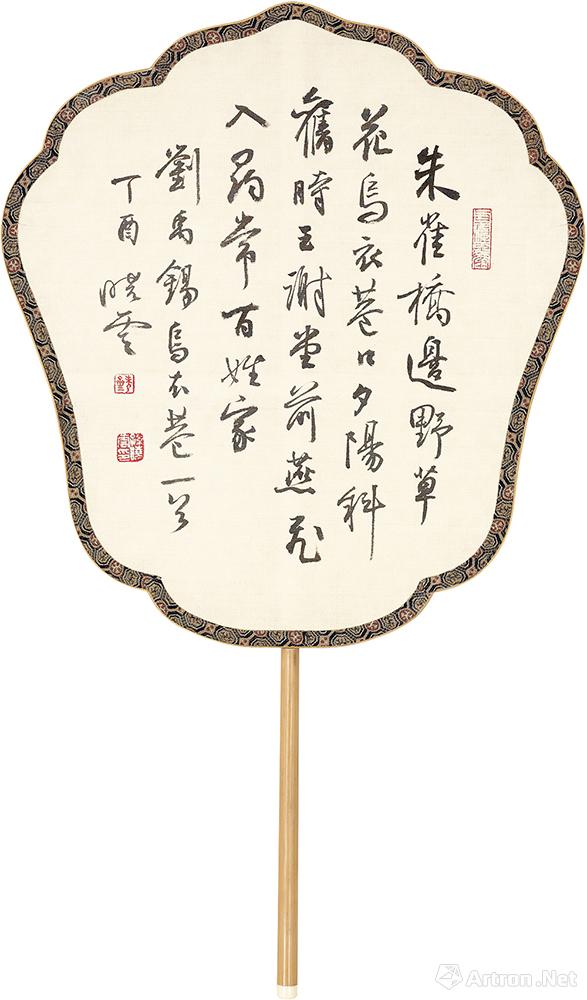 朱雀橋邊野草
花烏衣巷口夕陽斜
舊時王謝堂前燕飛
入尋常百姓家
劉禹錫烏衣巷一首
丁酉 曉雲
Artron.Net